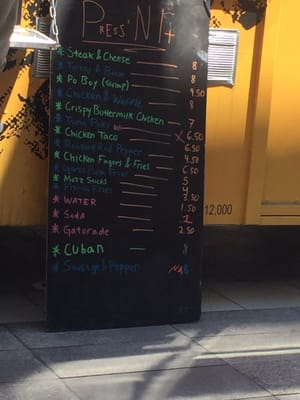 PRESS' N It
* Steak & Cheese — 8
* Turkey & Bacon — 8
* Po Boy (shrimp) — 9.50
* Chicken & Waffle — 8
* Crispy Buttermilk Chicken — 7
* Tuna Poke
* Chicken Taco — 6.50
* Roasted Red Pepper — 6.50
* Chicken Fingers & Fries — 4.50
6.50
* Mozz Sticks — 5
* French Fries — 4
* WATER — 3.50
* SodA — 1.50
* Gatorade — 1
2.50
* CUBAN — 8
* Sausage & Pepper
12,000